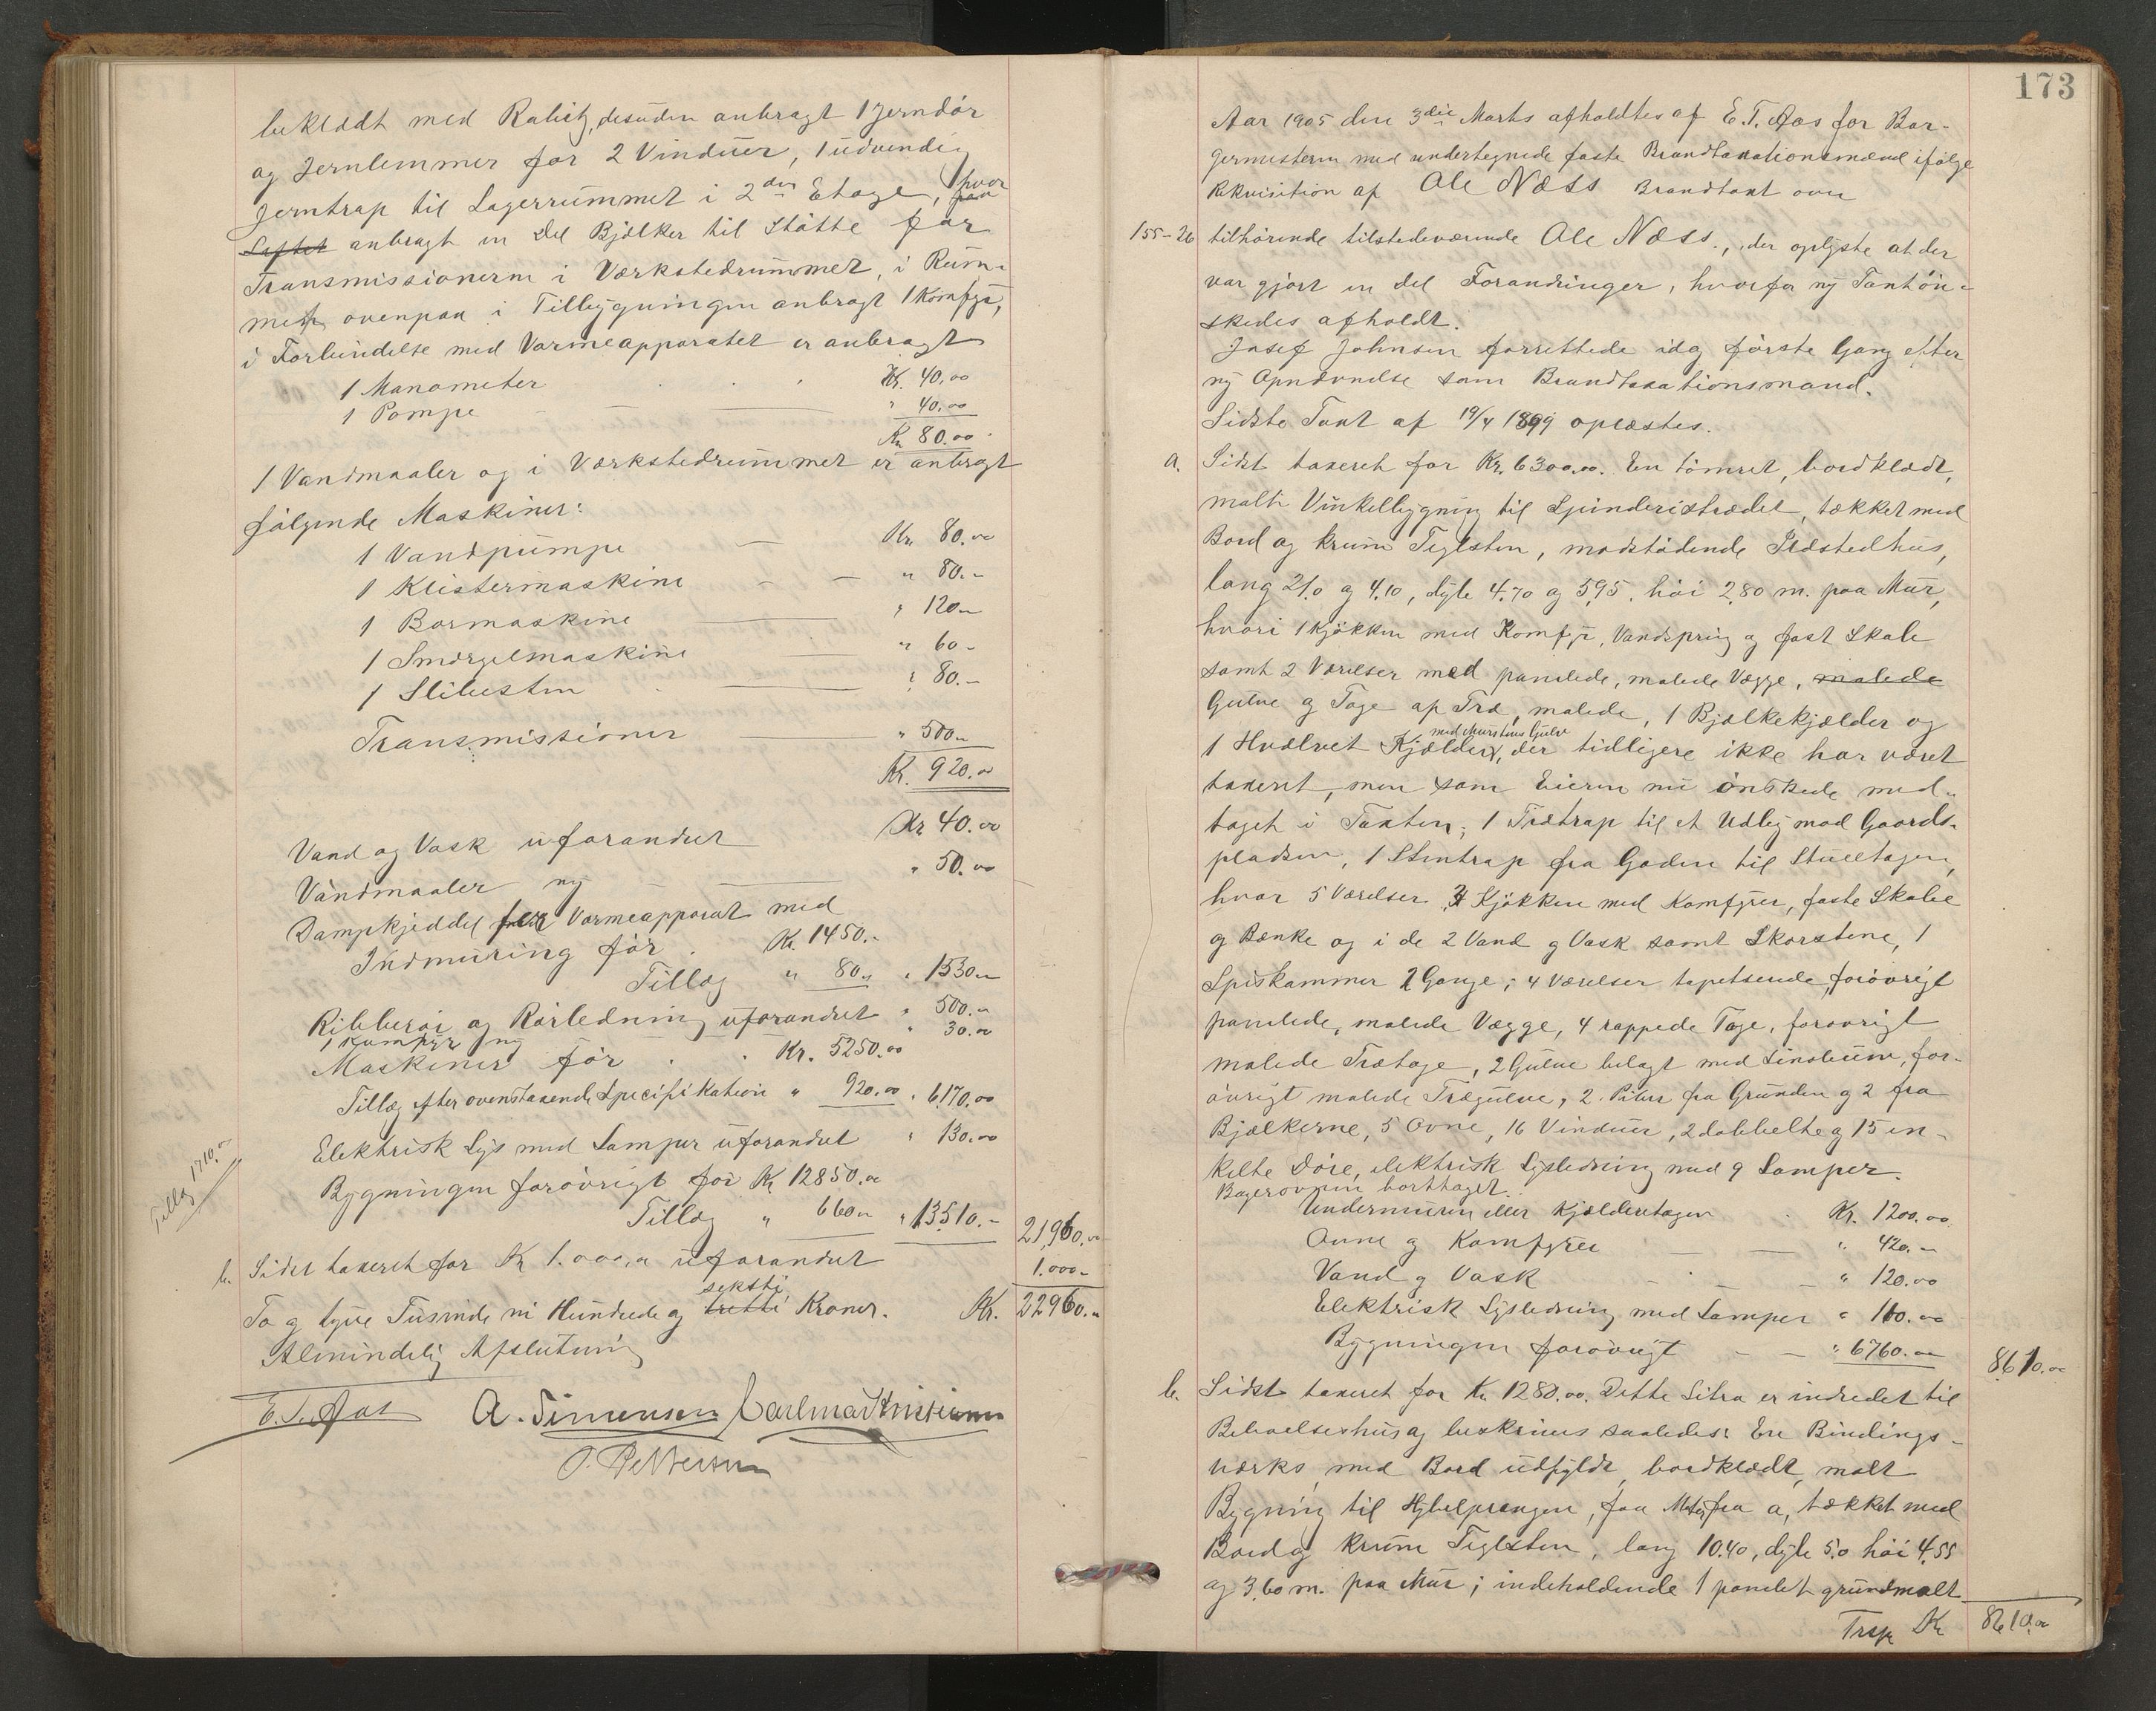 beklædt med Rabitz, desuden anbragt 1 Jerndör
og Jernlemmer for 2 Vinduer, 1 udvendig
Jerntrap til Lagerrummet i 2den Etage, hvor
Loftet anbragt en Del Bjelker til Stötte for
Transmissionerne i Værkstedrummet, i Rum-
met ovenpaa i Tilbygningen anbragt 1 Komfyr,
i Forbindelse med Varmeapparatet er anbragt
1 Manometer Kr. 40,00
1 Pompe " 40,00
Kr. 80.00
1 Vandmaaler og i Værkstedrummet er anbragt
fölgende Maskiner:
1 Vandpumpe Kr. 80.00
1 Klistermaskine " 80.-
1 Bormaskine " 120.-
1 Smergelmaskine " 60-
1 Slibesten " 80.-
Transmissioner " 500.-
Kr. 920.00
Vand og Vask uforandret Kr 40.00
Vandmaaler ny " 50.00
Dampkjeddel Varmeapparat med
Indmuring för Kr. 1450.-
Tillæg " 80.- " 1530.-
Ribberör og Rörledning uforandret " 500.-
1 Komfyr ny " 30.00
Maskiner för Kr. 5250.00
Tillæg efter ovenstaaende Specifikation " 920.00 " 6,170.00
Elektrisk Lys med Lamper uforandret " 130.00
Bygningen forövrigt för Kr 12850.00
Tillæg 1710.00
Tillæg " 660.- " 13510.- 21,960.00
b. Sidst taxeret for Kr 1.000,00 uforandret 1.000-
seksti
To og tyve Tusinde ni Hundrede og tretti Kroner. Kr. 22960.00
Almindelig Afslutning
E. T. Aas A. Simensen Carlmar Kristiansen
O. Pettersen
173
Aar 1905 den 3die Marts afholdtes af E. T. Aas for Bor-
germesteren med undertegnede faste Brandtaxationsmænd ifölge
Rekvisition af Ole Næss Brandtaxt over
155-26 tilhörende tilstedeværende Ole Næss., der oplyste at der
var gjort en Del Forandringer, hvorfor ny Taxt ön-
skedes afholdt.
Josef Johnsen forrettede idag förste Gang efter
ny Opnævnelse som Brandtaxationsmand.
Sidste Taxt af 19/4 1899 oplæstes.
a. Sidst taxeret for Kr. 6300,00. En tömret, bordklædt,
malt Vinkelbygning til Spinderistrædet, tækket med
Bord og krum Teglsten, modstödende Ildstedhus,
lang 21.0 og 4.10, dyb 4.70 og 5.95. höi 2.80 m. paa Mur,
hvori 1 kjökken med Komfyr, Vandspring og fast Skab
samt 2 Værelser med panelede, malede Vægge, malede
Gulve og Tage af Træ, malede, 1 Bjelkekjælder og
med Murstens Gulv
1 Hvælvet Kjælder, der tidligere ikke har været
taxeret, men som Eieren nu önskede med-
taget i Taxten; 1 Trætrap til et Udbyg mod Gaards-
pladsen, 1 Stentrap fra Gaden til Stueetagen,
hvor 5 Værelser 3 Kjökken med Komfyrer, faste Skabe
og Bænke og i de 2 Vand og Vask samt Skorstene, 1
Spiskammer 2 Gange; 4 Værelser tapetserede, forövrigt
panelede, malede Vægge, 4 rappede Tage, forövrigt
malede Trætage, 2 Gulve belagt med Linoleum, for-
övrigt malede Trægulve, 2 Piber fra Grunden og 2 fra
Bjælkerne, 5 Ovne, 16 Vinduer, 2 dobbelte og 15 en-
kelte Döre, elektrisk Lysledning med 9 Lamper.
Bagerovnen borttaget.
Undermuren eller Kjælderetagen Kr. 1200.00
Ovne og Komfyrer " 420.-
Vand og Vask " 120.00
Elektrisk Lysledning med Lamper " 110.00
Bygningen forövrigt " 6760.00 8.610.00
b. Sidst taxeret for Kr. 1280.00. Dette Litra er indredet til
Beboelseshus og beskrives saaledes: En Bindings-
værks, med Bord udfyldt, bordklædt, malt
Bygning til Hybelprangen, faa Meter fra a, tækket med
Bord og krum Teglsten, lang 10.40, dyb 5.0 höi 4.55
og 3.60 m. paa Mur; indeholdende 1 panelet grundmalt
Trsp Kr 8610.00